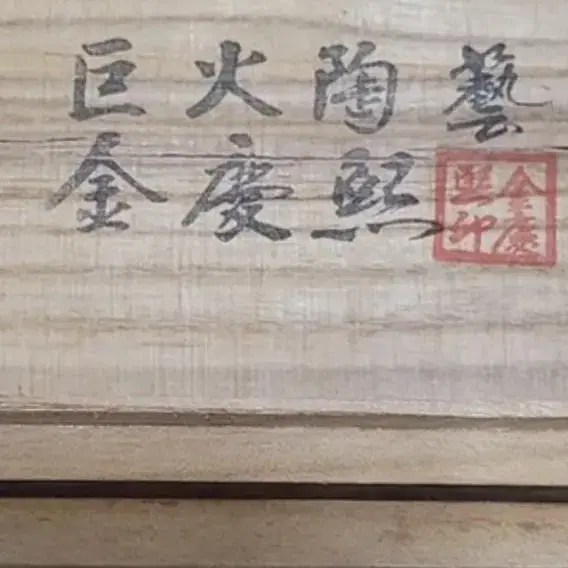 巨火陶藝
金慶熙
金慶
熙印